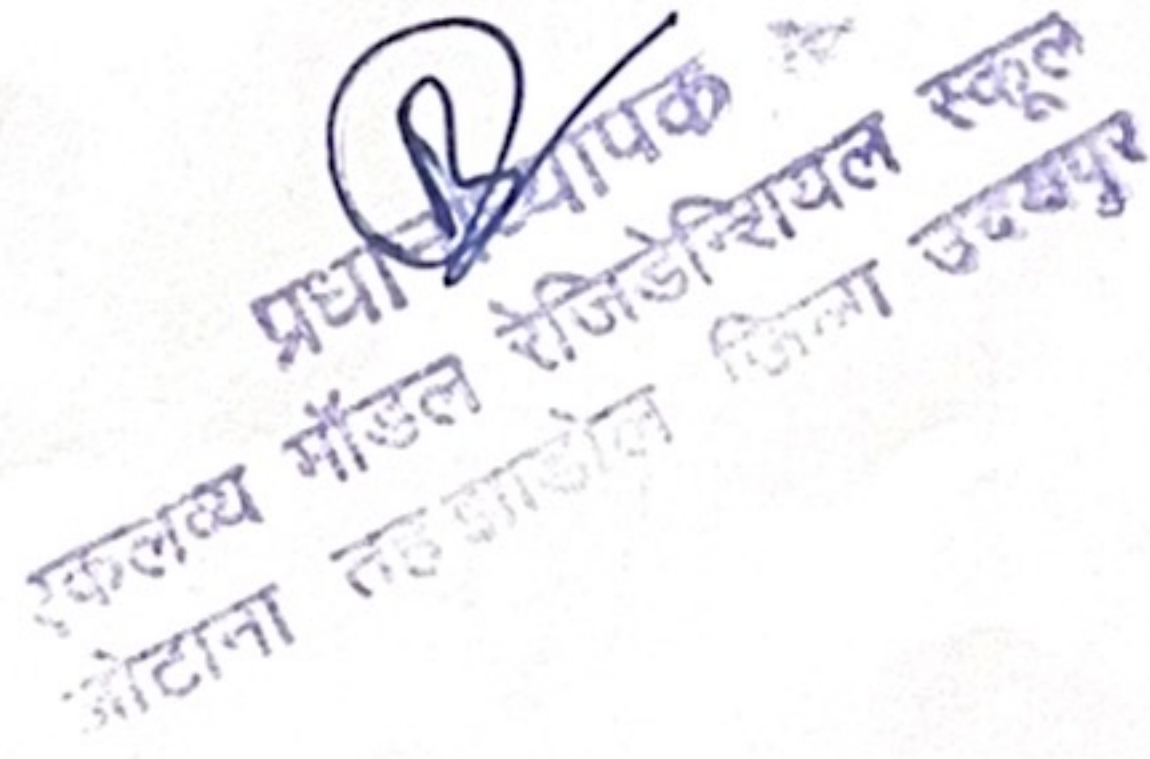 प्रधानाध्यापक
एकलव्य मॉडल रेजिडेन्शियल स्कूल
तह झाडोल जिला उदयपुर